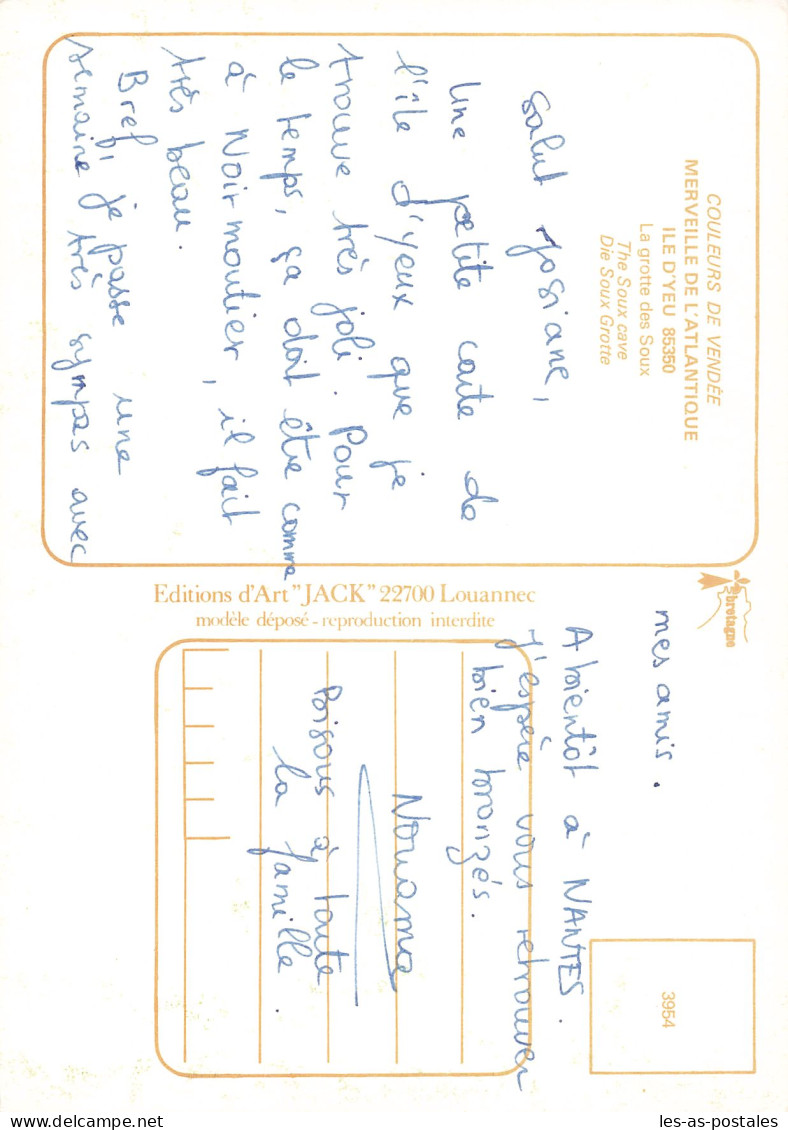 COULEURS DE VENDÉE
MERVEILLE DE L'ATLANTIQUE
ILE D'YEU 85350
La grotte des Soux
The Soux cave
Die Soux Grotte
Salut Josiane,
Une petite carte de
l'île d'Yeux que je
trouve très joli. Pour
le temps, ça doit être comme
à Noirmoutier, il fait
très beau.
Bref, je passe une
semaine très sympas avec
Editions d'Art "JACK" 22700 Louannec
modèle déposé - reproduction interdite
bretagne
mes amis.
A bientôt à NANTES.
J'espère vous retrouver
bien bronzés.
Bisous à toute
la famille.
3954
les-as-postales.com